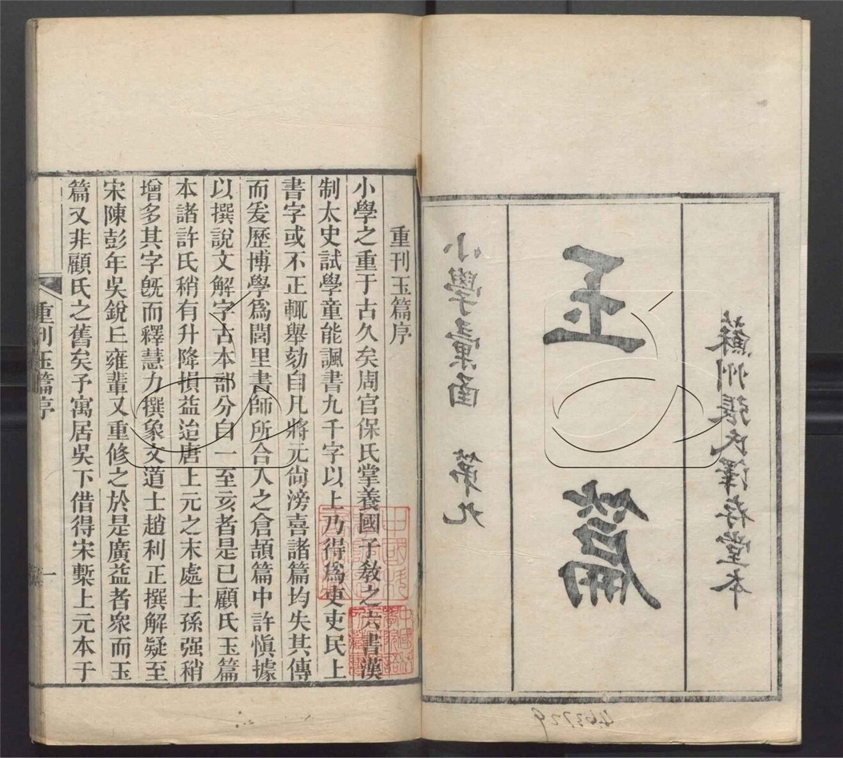 蘇州張氏澤存堂本
玉篇
小學彙函 第九
463729
重刊玉篇序
小學之重于古久矣周官保氏掌養國子敎之六書漢
制太史試學童能諷書九千字以上乃得爲吏吏民上
書字或不正輒舉劾自凡將元尙滂喜諸篇均失其傳
而爰歷博學爲閭里書師所合入之倉頡篇中許愼據
以撰說文解字古本部分自一至亥者是已顧氏玉篇
本諸許氏稍有升降損益迨唐上元之末處士孫强稍
增多其字旣而釋慧力撰象文道士趙利正撰解疑至
宋陳彭年吳銳丘雍輩又重修之於是廣益者衆而玉
篇又非顧氏之舊矣予寓居吳下借得宋槧上元本于
重刊玉篇序
一